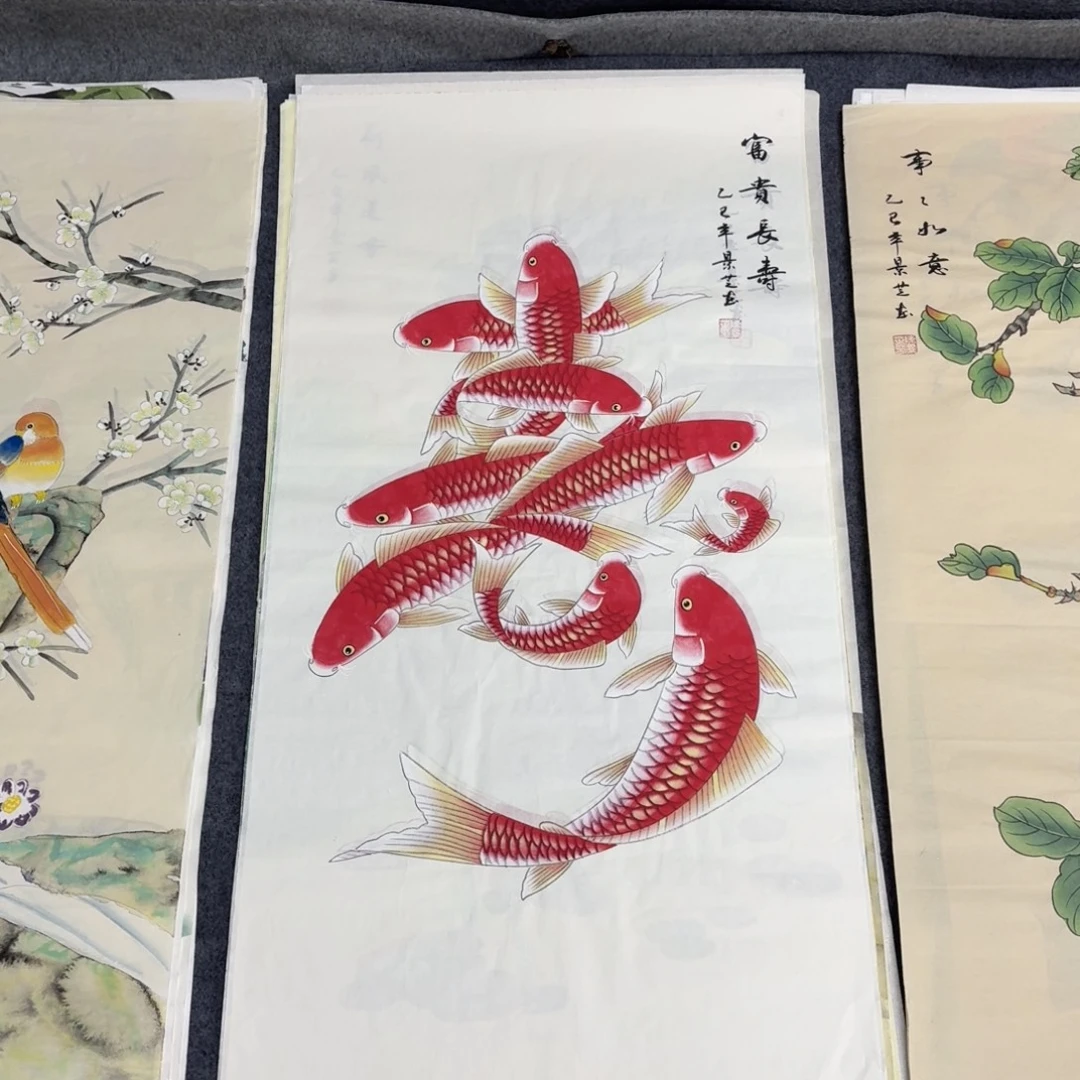 富貴長壽
乙巳年景芝画
事々如意
乙巳年景芝画